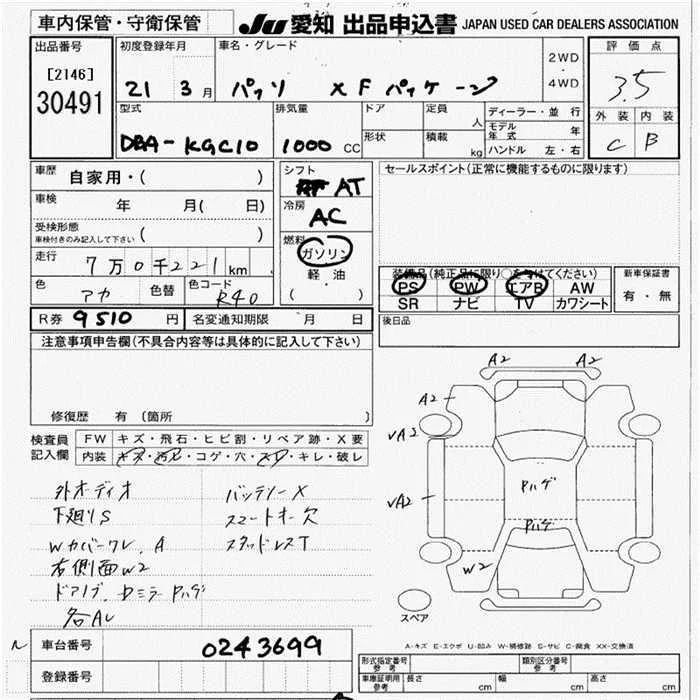 車内保管・守衛保管 JU 愛知 出品申込書 JAPAN USED CAR DEALERS ASSOCIATION
出品番号 初度登録年月 車名・グレード 評価点
[2146] 2WD
30491 21 3月 パッソ X F パッケージ 4WD 3.5
型式 排気量 ドア 定員 人 ディーラー・並行 外装 内装
DBA-KGC10 1000 CC 形状 積載 kg モデル年式 年 C B
ハンドル 左・右
車歴 自家用・( ) シフト AT セールスポイント(正常に機能するものに限ります)
車検 年 月( 日) 冷房 AC
受検形態 ( )
車検付きのみ記入して下さい
燃料 ガソリン
走行 7万0千221km 軽油
( )
装備品(純正品に限り○をつけてください) 新車保証書
色 アカ 色替 色コード R40
PS PW エアB AW 有・無
SR ナビ TV カワシート
R券 9510 円 名変通知期限 月 日 後日品
注意事項申告欄(不具合内容等は具体的に記入して下さい)
修復歴 有 (箇所 )
検査員 FW キズ・飛石・ヒビ割・リペア跡・X要
記入欄 内装 キズ・汚レ・コゲ・穴・スレ・キレ・破レ
外オーディオ バッテリーX
下廻りS スマートキー欠
Wカバーワレ、A スタッドレスT
右側面W2
ドアノブ、ドミラーPハゲ
各AL
A2 A2
A2
√A2
√A2 Pハゲ
Pハゲ
W2
スペア
A-キズ E-エクボ U-凹み W-補修跡 S-サビ C-腐食 XX-交換済
車台番号 0243699
登録番号
形式指定番号 参考 類別区分番号 参考
車庫証明用 参考 長さ cm 幅 cm 高さ cm